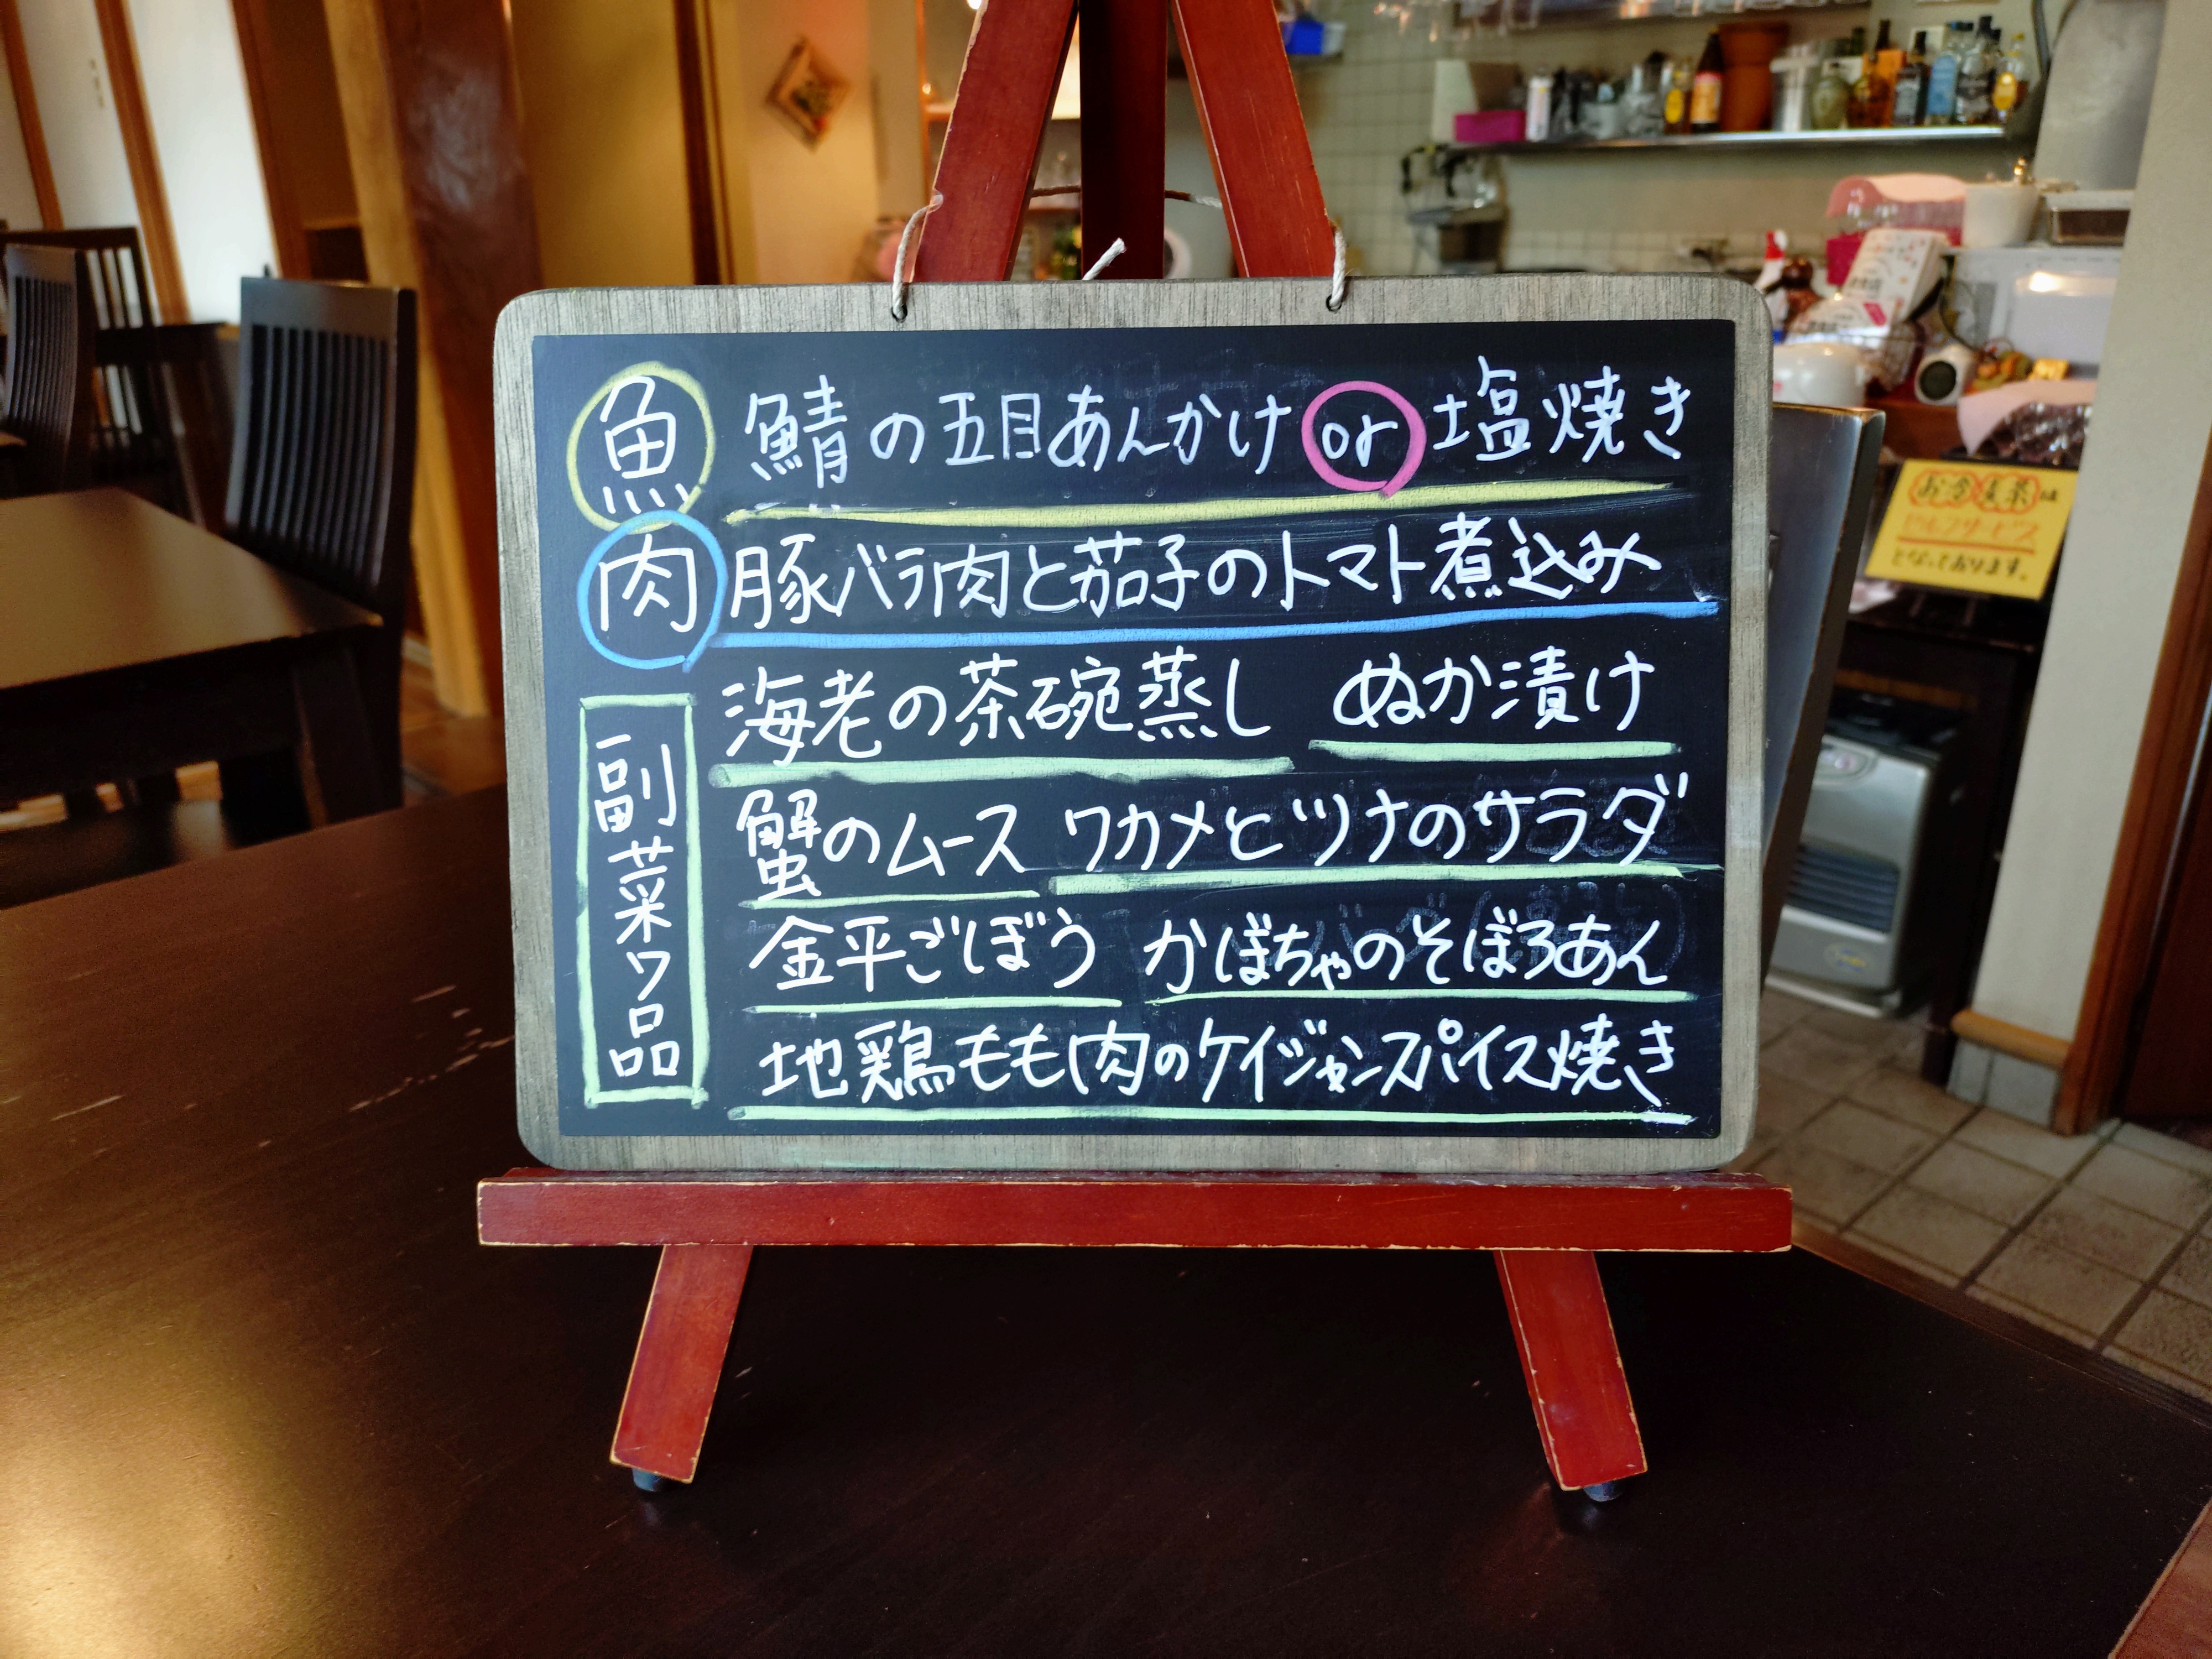 魚 鯖の五目あんかけ or 塩焼き
肉 豚バラ肉と茄子のトマト煮込み
副菜7品
海老の茶碗蒸し ぬか漬け
蟹のムース ワカメとツナのサラダ
金平ごぼう かぼちゃのそぼろあん
地鶏もも肉のケイジャンスパイス焼き
お冷 麦茶は
セルフサービス
となっております。